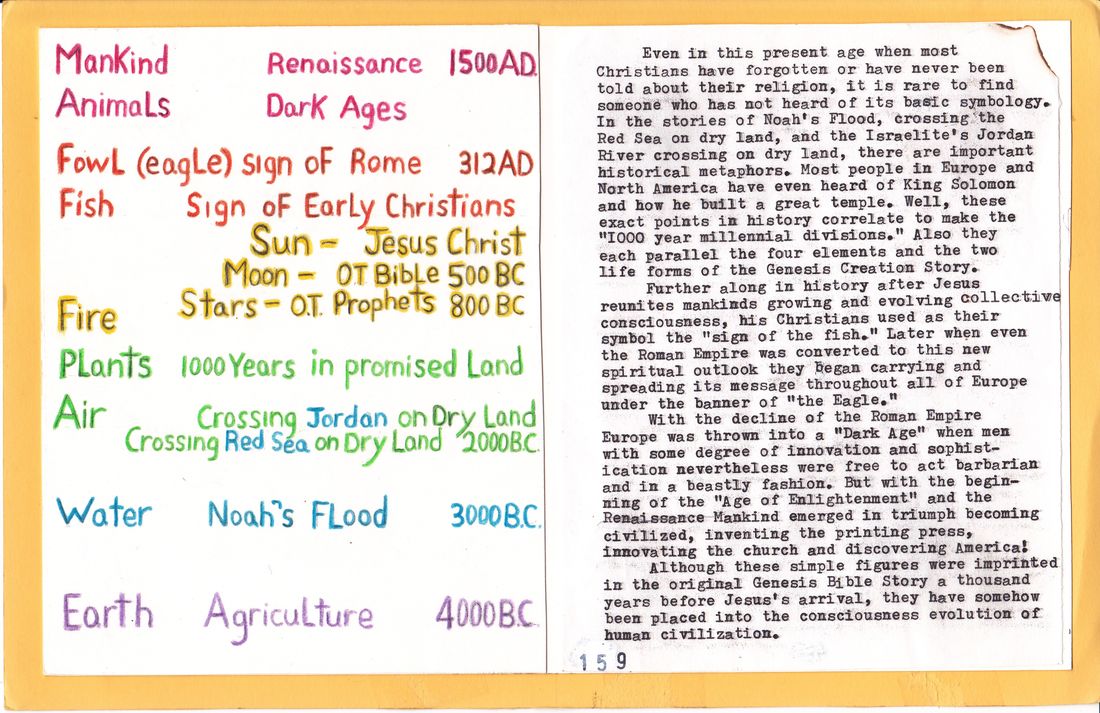 Mankind Renaissance 1500AD.
Animals Dark Ages
Fowl (eagle) sign of Rome 312AD
Fish Sign of Early Christians
Sun - Jesus Christ
Moon - OT Bible 500 BC
Stars - O.T. Prophets 800 BC
Fire
Plants 1000 Years in promised Land
Air Crossing Jordan on Dry Land
Crossing Red Sea on Dry Land 2000B.C.
Water Noah's Flood 3000B.C.
Earth Agriculture 4000B.C.
Even in this present age when most
Christians have forgotten or have never been
told about their religion, it is rare to find
someone who has not heard of its basic symbology.
In the stories of Noah's Flood, crossing the
Red Sea on dry land, and the Israelite's Jordan
River crossing on dry land, there are important
historical metaphors. Most people in Europe and
North America have even heard of King Solomon
and how he built a great temple. Well, these
exact points in history correlate to make the
"1000 year millennial divisions." Also they
each parallel the four elements and the two
life forms of the Genesis Creation Story.
Further along in history after Jesus
reunites mankinds growing and evolving collective
consciousness, his Christians used as their
symbol the "sign of the fish." Later when even
the Roman Empire was converted to this new
spiritual outlook they began carrying and
spreading its message throughout all of Europe
under the banner of "the Eagle."
With the decline of the Roman Empire
Europe was thrown into a "Dark Age" when men
with some degree of innovation and sophist-
ication nevertheless were free to act barbarian
and in a beastly fashion. But with the begin-
ning of the "Age of Enlightenment" and the
Renaissance Mankind emerged in triumph becoming
civilized, inventing the printing press,
innovating the church and discovering America!
Although these simple figures were imprinted
in the original Genesis Bible Story a thousand
years before Jesus's arrival, they have somehow
been placed into the consciousness evolution of
human civilization.
159